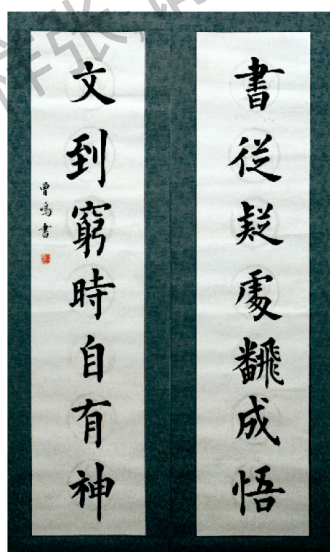 書從疑處飜成悟
文到窮時自有神
曾鳴書